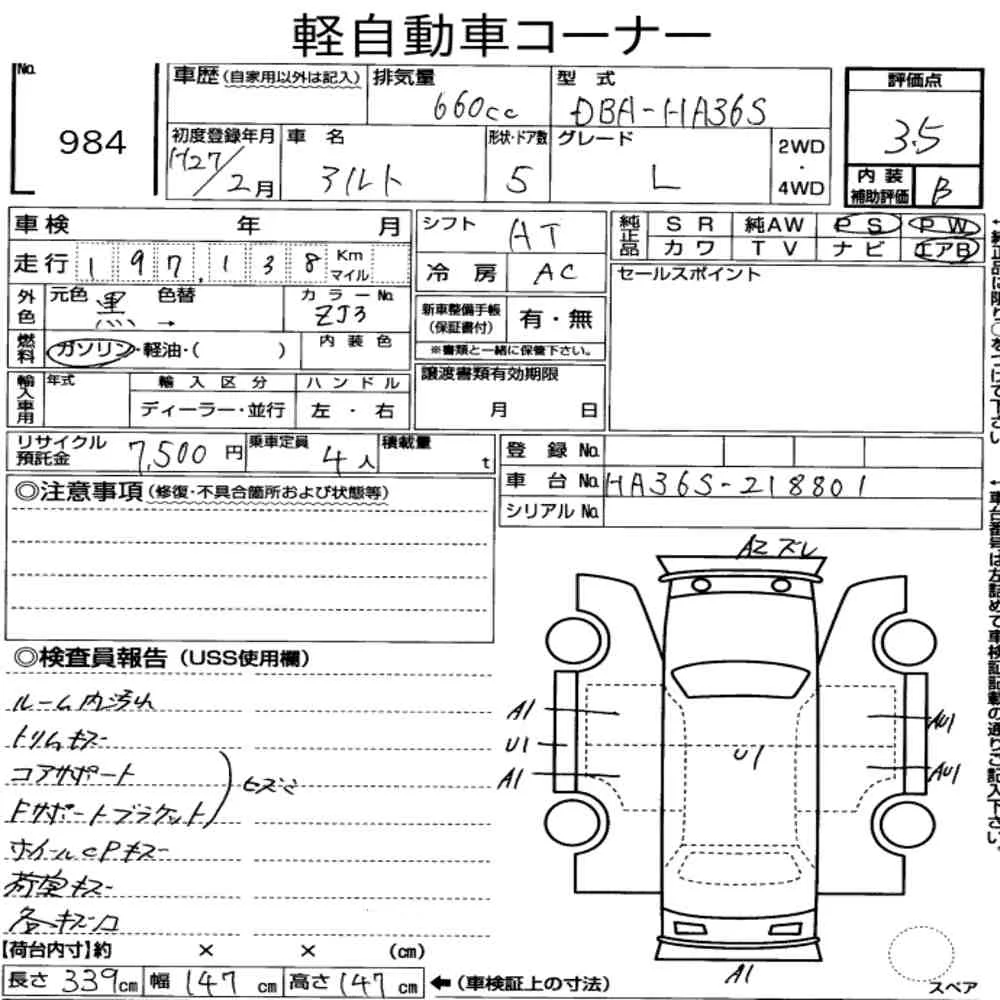 軽自動車コーナー
No.
984
車歴(自家用以外は記入)
排気量
660cc
型式
DBA-HA36S
評価点
3.5
初度登録年月
H27/2月
車名
アルト
形状・ドア数
5
グレード
L
2WD
・
4WD
内装
補助評価
B
車検 年 月
走行 197,138 Km
マイル
シフト
AT
冷房
AC
純正品
SR 純AW PS PW
カワ TV ナビ エアB
セールスポイント
外色
元色 黒 色替 →
カラーNo.
ZJ3
新車整備手帳
(保証書付)
有・無
※書類と一緒に保管下さい。
燃料
ガソリン・軽油・( )
内装色
譲渡書類有効期限
月 日
輸入車用
年式
輸入区分
ディーラー・並行
ハンドル
左・右
リサイクル
預託金
7,500円
乗車定員
4人
積載量
t
登録No.
車台No.
HA36S-218801
シリアルNo.
◎注意事項(修復・不具合箇所および状態等)
◎検査員報告(USS使用欄)
ルーム内汚れ
トリムキズ
コアサポート
Fサポートブラケット
ヒズミ
ホイールCPキズ
荷室キズ
各キズ凹
A2ズレ
A1
U1
A1
U1
AU1
AU1
A1
スペア
【荷台内寸】約 × × (cm)
長さ 339cm 幅 147cm 高さ 147cm
←(車検証上の寸法)
←純正品に限り○をつけて下さい
←車台番号は左詰めで車検証記載の通りご記入下さい。